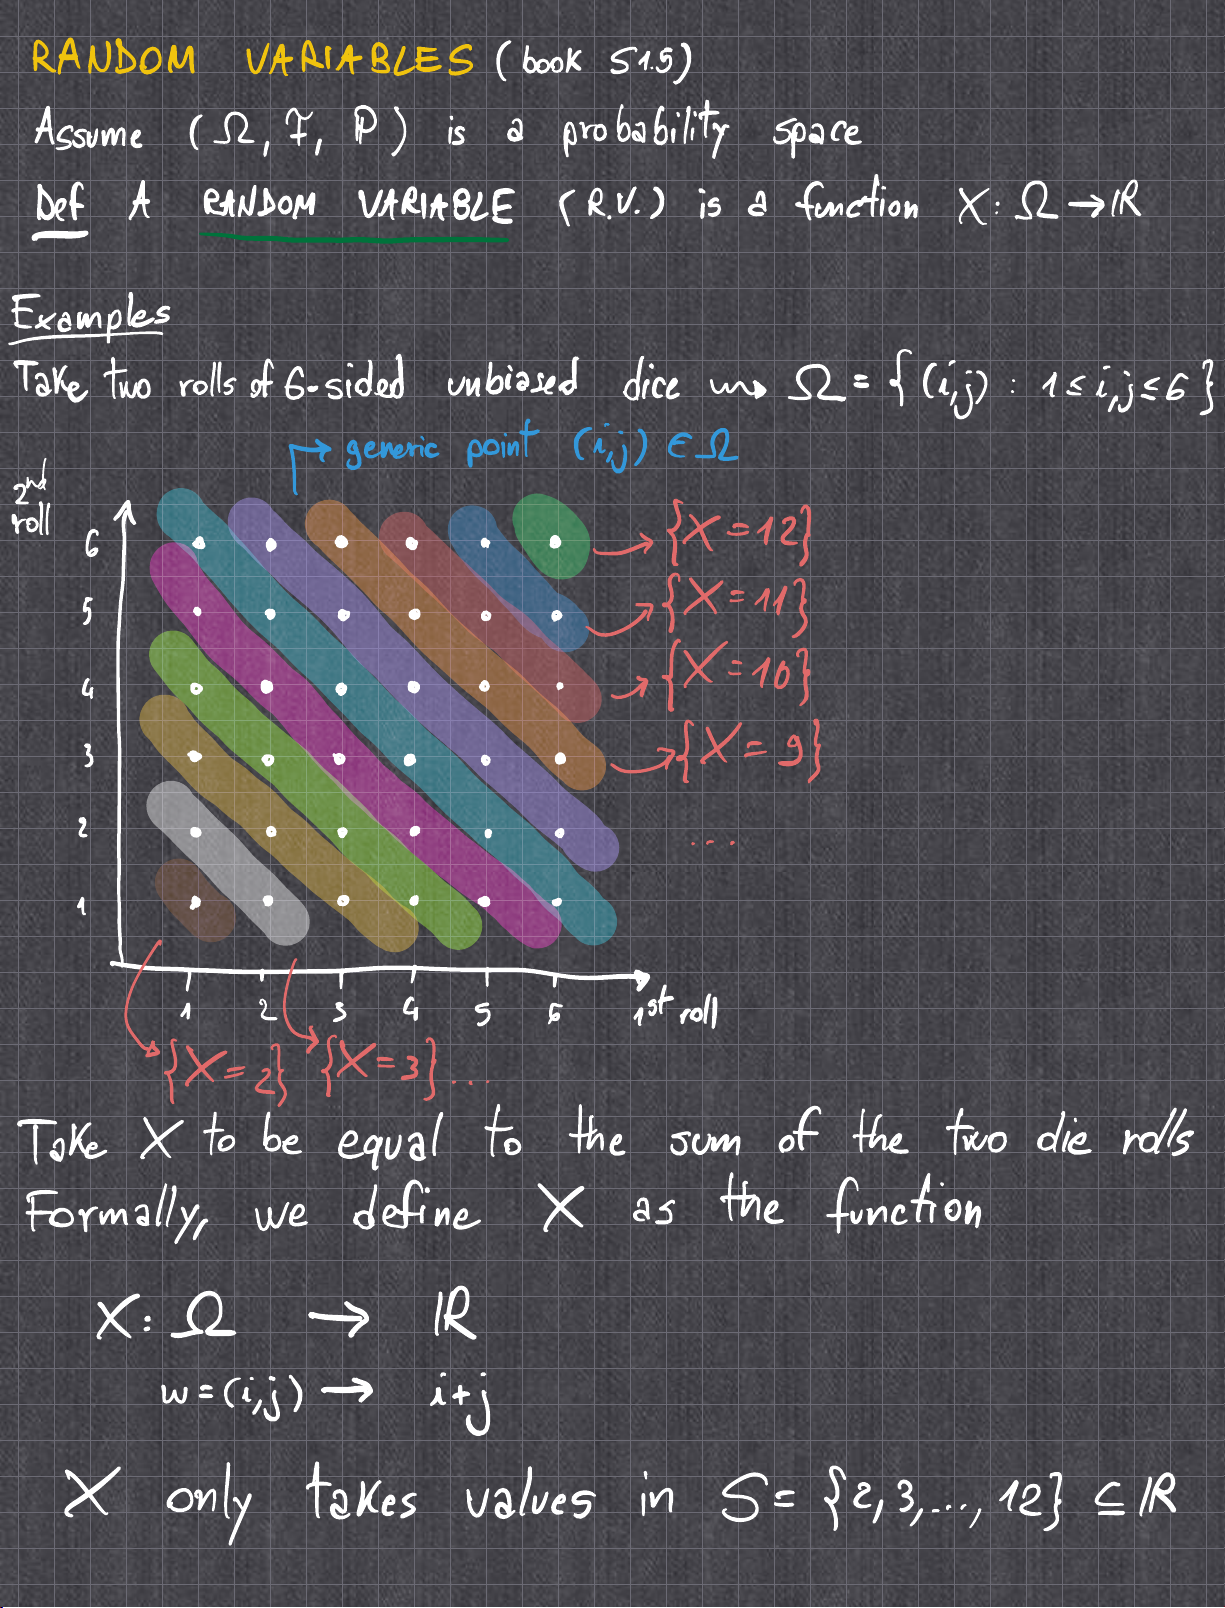 RANDOM VARIABLES (book §1.5)
Assume (Ω, F, ℙ) is a probability space
Def A RANDOM VARIABLE (R.V.) is a function X: Ω → ℝ
Examples
Take two rolls of 6-sided unbiased dice ⇝ Ω = { (i,j) : 1 ≤ i,j ≤ 6 }
generic point (i,j) ∈ Ω
2nd
roll
6
{X = 12}
5
{X = 11}
4
{X = 10}
3
{X = 9}
2
...
1
1 2 3 4 5 6 1st roll
{X = 2} {X = 3} ...
Take X to be equal to the sum of the two die rolls
Formally, we define X as the function
X: Ω → ℝ
w = (i,j) → i+j
X only takes values in S = {2, 3, ..., 12} ⊆ ℝ